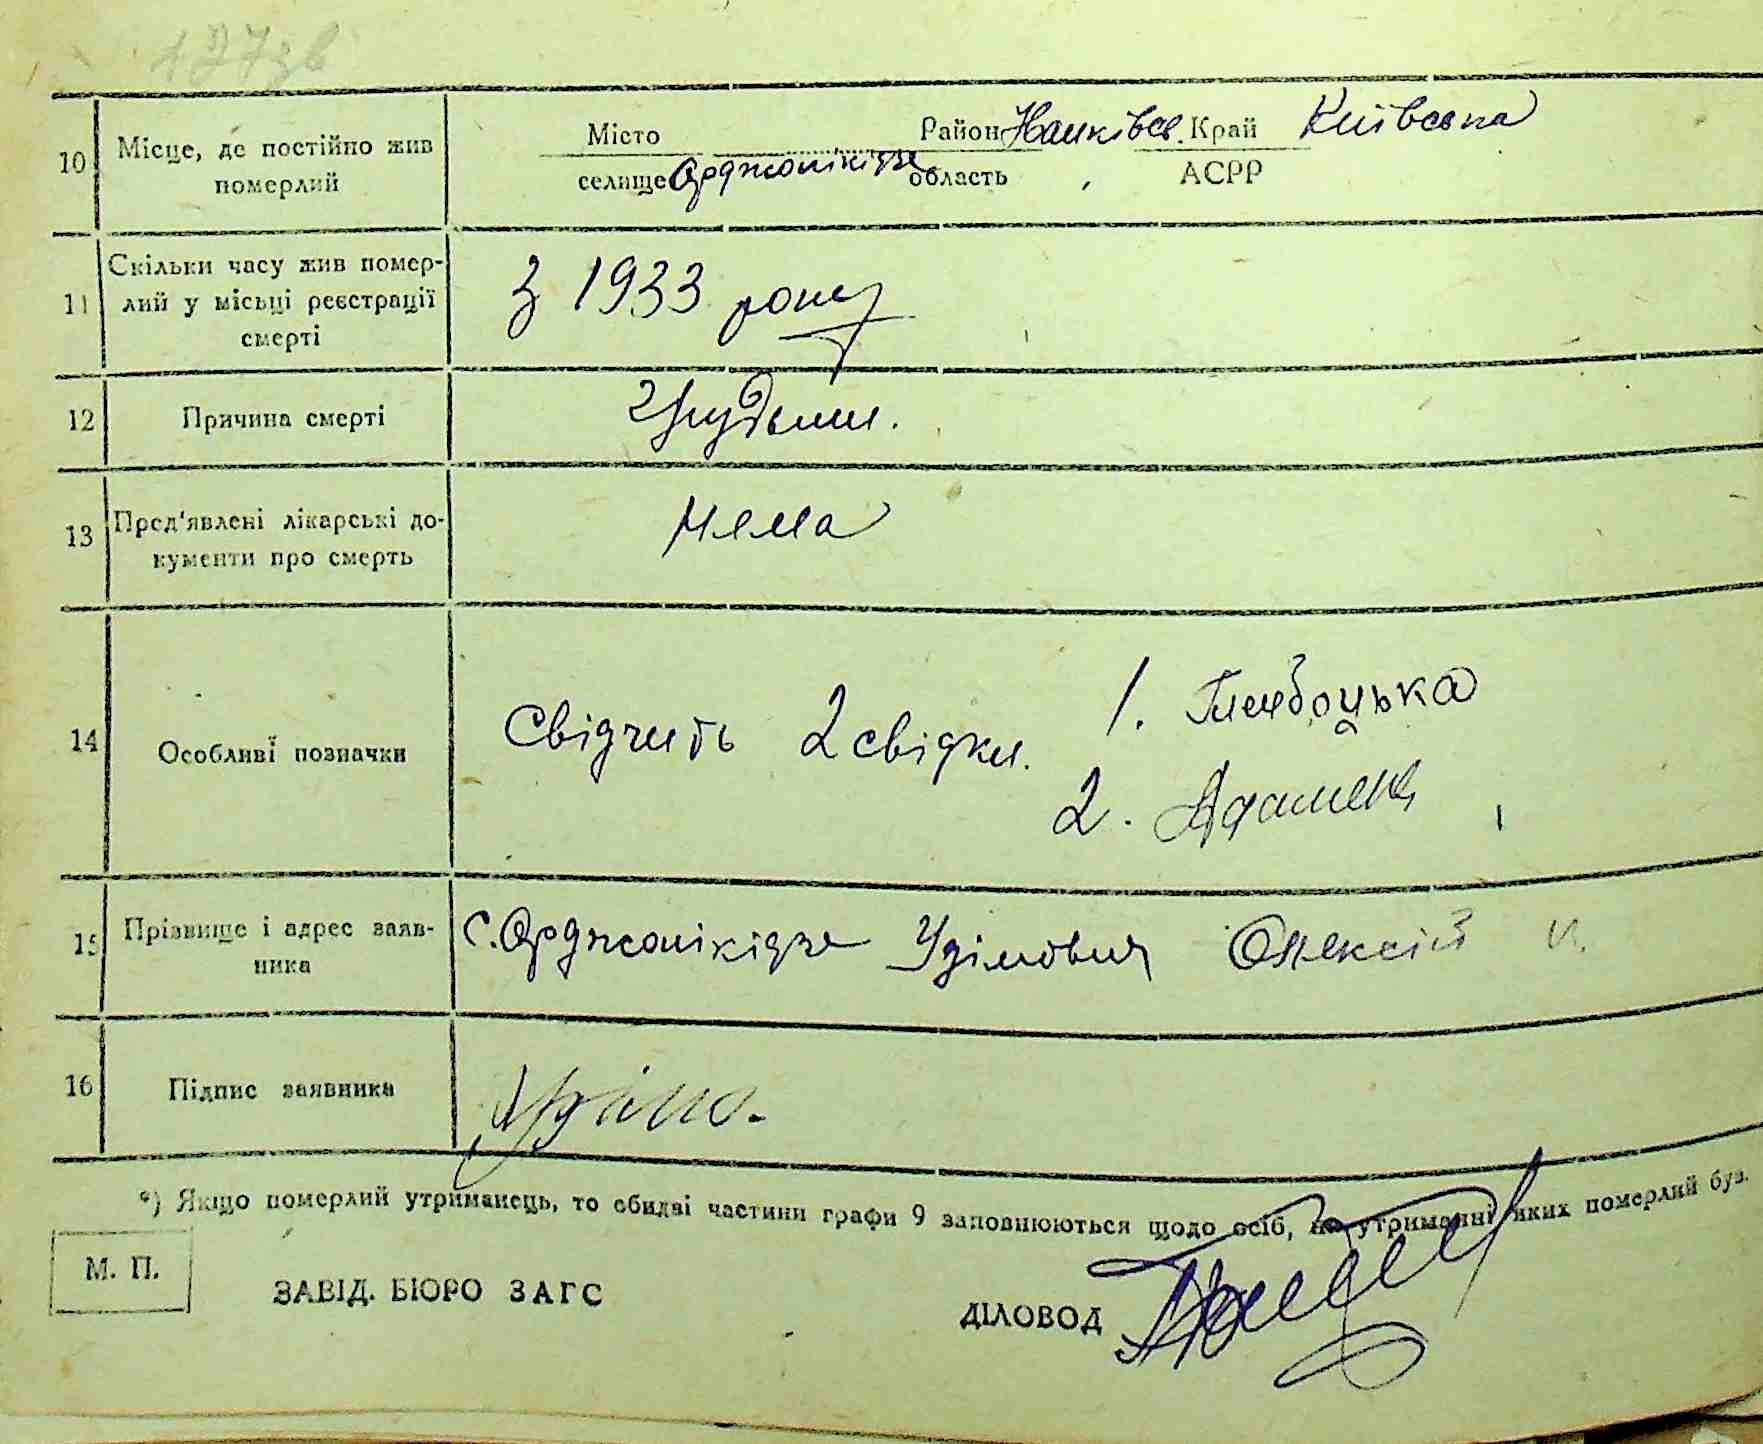 177 зв
10 Місце, де постійно жив померлий
Місто Район Край Київська
селище Орджонікідзе область , АСРР
11 Скільки часу жив помер-
лий у місьці реєстрації
смерті
З 1933 року
12 Причина смерті
13 Пред'явлені лікарські до-
кументи про смерть
Нема
14 Особливі позначки
Свідчить 2 свідки. 1.
2.
15 Прізвище і адрес заяв-
ника
с. Орджонікідзе Олексій
16 Підпис заявника
*) Якщо померлий утриманець, то обидві частини графи 9 заповнюються щодо осіб, на утриманні яких померлий був.
М. П.
ЗАВІД. БЮРО ЗАГС
ДІЛОВОД